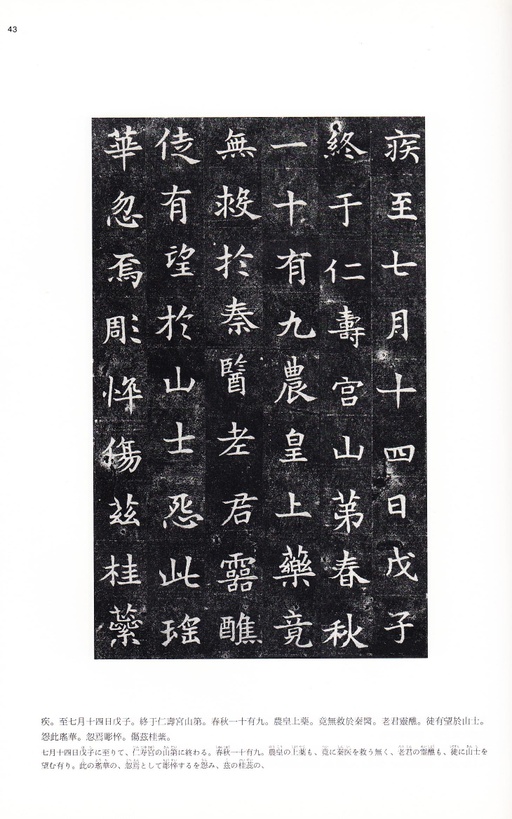 43
疾至七月十四日戊子
終于仁壽宮山第春秋
一十有九農皇上藥竟
無救於秦醫老君靈醮
徒有望於山士怨此瑤
華忽焉彫悴傷茲桂蘂
疾。至七月十四日戊子。終于仁壽宮山第。春秋一十有九。農皇上藥。竟無救於秦醫。老君靈醮。徒有望於山士。
怨此瑤華。忽焉彫悴。傷茲桂蘂。
七月十四日戊子に至りて、仁寿宮の山第に終わる。春秋一十有九。農皇の上薬も、竟に秦医を救う無く、老君の霊醮も、徒に山士を
望む有り。此の瑤華の、忽焉として彫悴するを怨み、茲の桂蘂の、